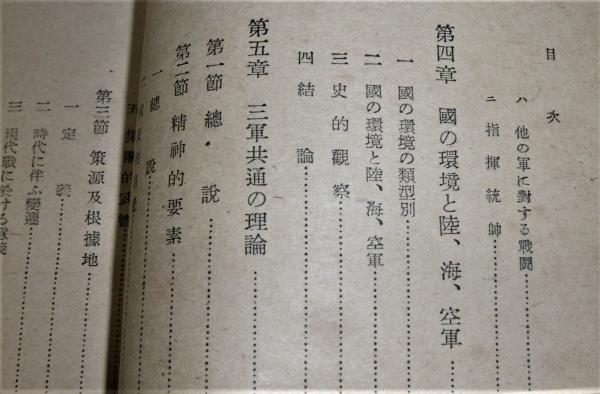 目次
ハ 他の軍に對する戰鬪
ニ 指揮統帥
第四章 國の環境と陸、海、空軍
一 國の環境の類型別
二 國の環境と陸、海、空軍
三 史的觀察
四 結論
第五章 三軍共通の理論
第一節 總說
第二節 精神的要素
一 總說
第三節 策源及根據地
一 定義
二 時代に伴ふ變遷
三 現代戰に於ける意義